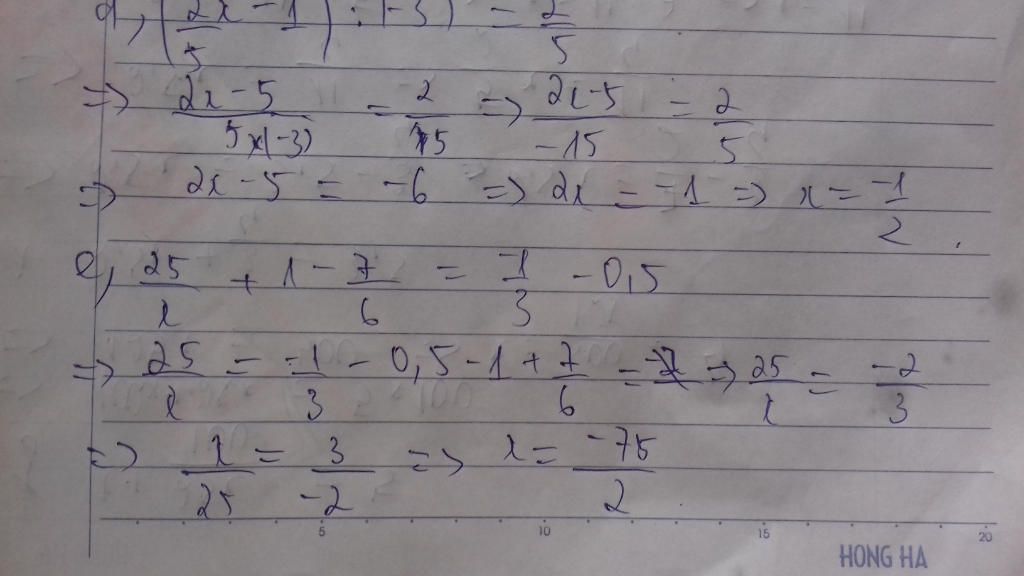 d, (2x/5 - 1) : (-3) = 2/5
=> (2x - 5)/(5x(-3)) = 2/15 => (2x-5)/-15 = 2/5
=> 2x - 5 = -6 => 2x = -1 => x = -1/2.
e, 25/x + 1 - 7/6 = -1/3 - 0,5
=> 25/x = -1/3 - 0,5 - 1 + 7/6 = => 25/x = -2/3
=> x/25 = 3/-2 => x = -75/2
5 10 15 20
HONG HA